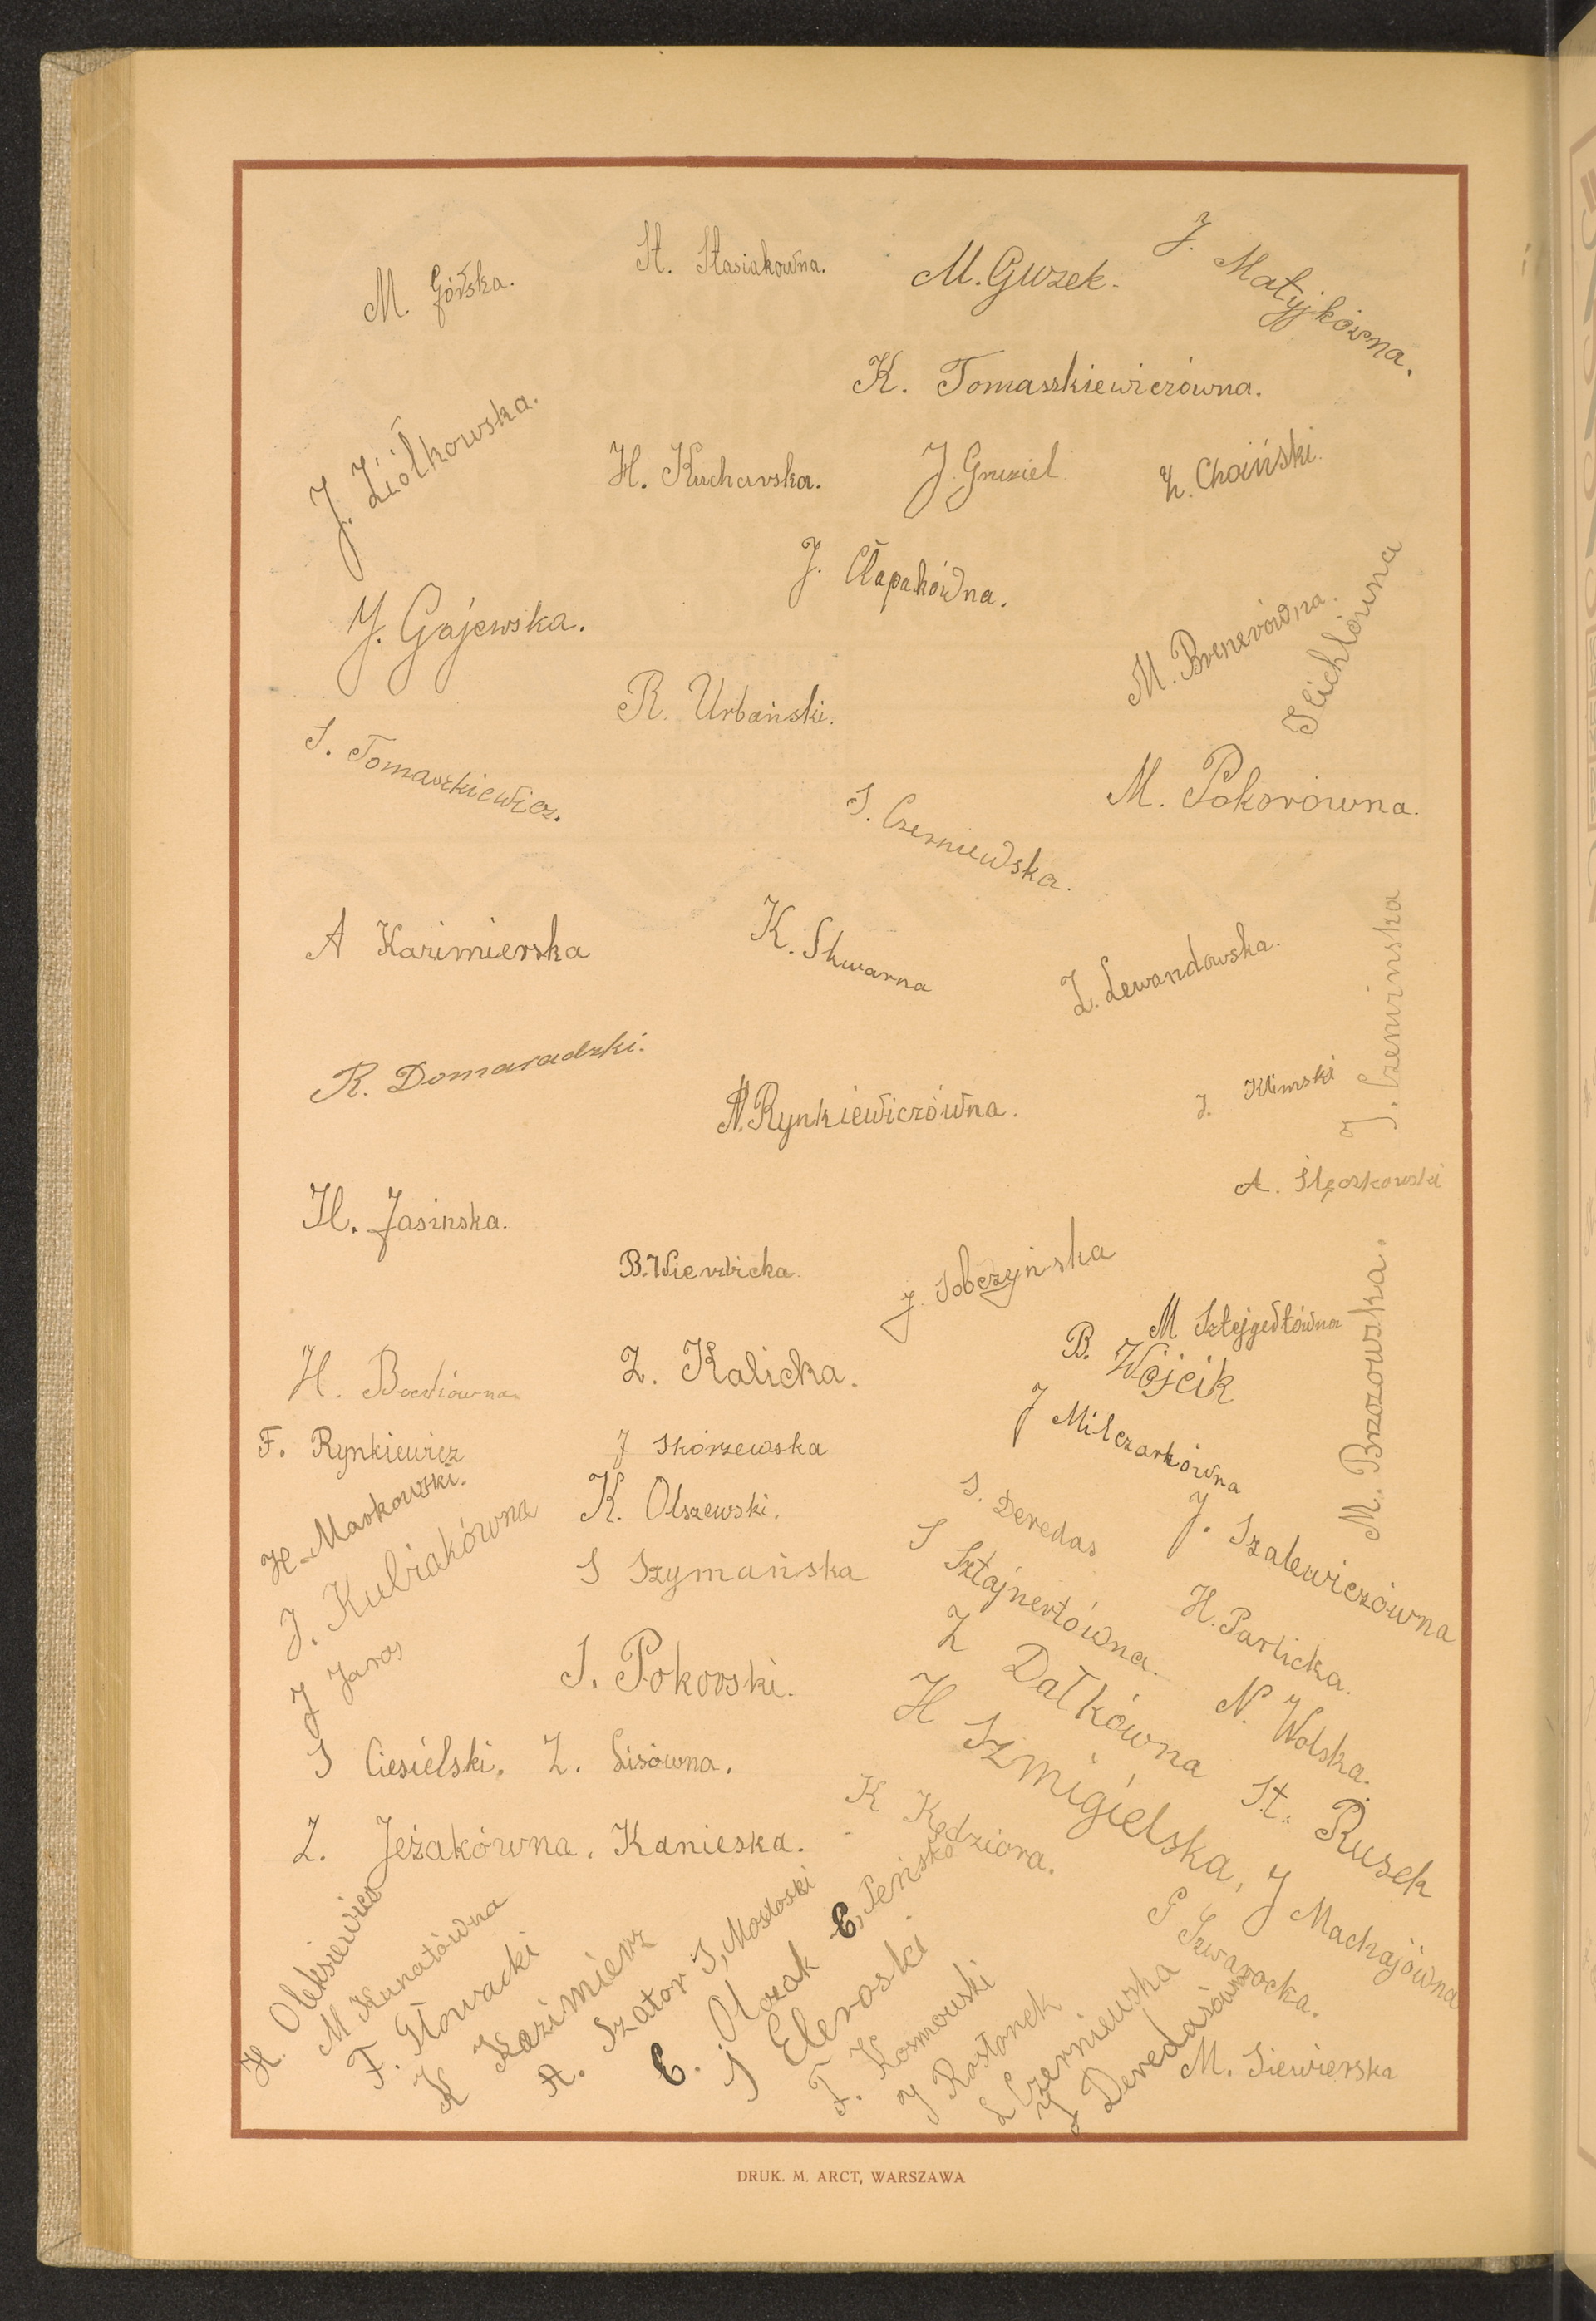 M. Górska.
St. Stasiakówna.
M. Guzek.
J. Matyjkówna.
K. Tomaszkiewiczówna.
J. Ziółkowska.
H. Kucharska.
J. Gruziel
Z. Choiński.
J. Cłapakówna.
J. Gajewska.
M. Brenerówna.
Slichtówna
R. Urbański.
S. Tomaszkiewicz.
S. Czerniewska.
M. Pokorówna.
A Kazimierska
K. Skwarna
Z. Lewandowska.
J. Czenvinska
R. Domaradzki.
N. Rynkiewiczówna.
J. Klimski
A. Stęczkowski
H. Jasinska.
B. Wierzbicka.
J. Sobczyńska
M. Brzozowska.
M Sztejgedtówna
B. Wójcik
H.
Z. Kalicka.
J Milczarkówna
F. Rynkiewicz
J Skórzewska
H. Markowski.
K. Olszewski.
S. Deredas
J. Szalewiczówna
J. Kubiakówna
S Szymańska
S Sztajnertówna.
H. Parlicka.
J Jaros
S. Pokorski.
Z Dałkówna
N. Wolska.
S Ciesielski.
Z. Lisówna.
H Szmigielska,
St. Rusek
Z. Jeżakówna.
Kanieska.
K Kędziora.
J Machajówna
H. Oleksiewicz
M Kunatówna
F. Słowacki
K Kazimierz
A. Szator
S, Mostoski
E. Olczak
E, Peńsko
S Eleroski
F. Kosmowski
J Rostanek
L Czerniewska
J Deredasówna
S Szwarocka.
M. Siewierska
DRUK. M. ARCT, WARSZAWA